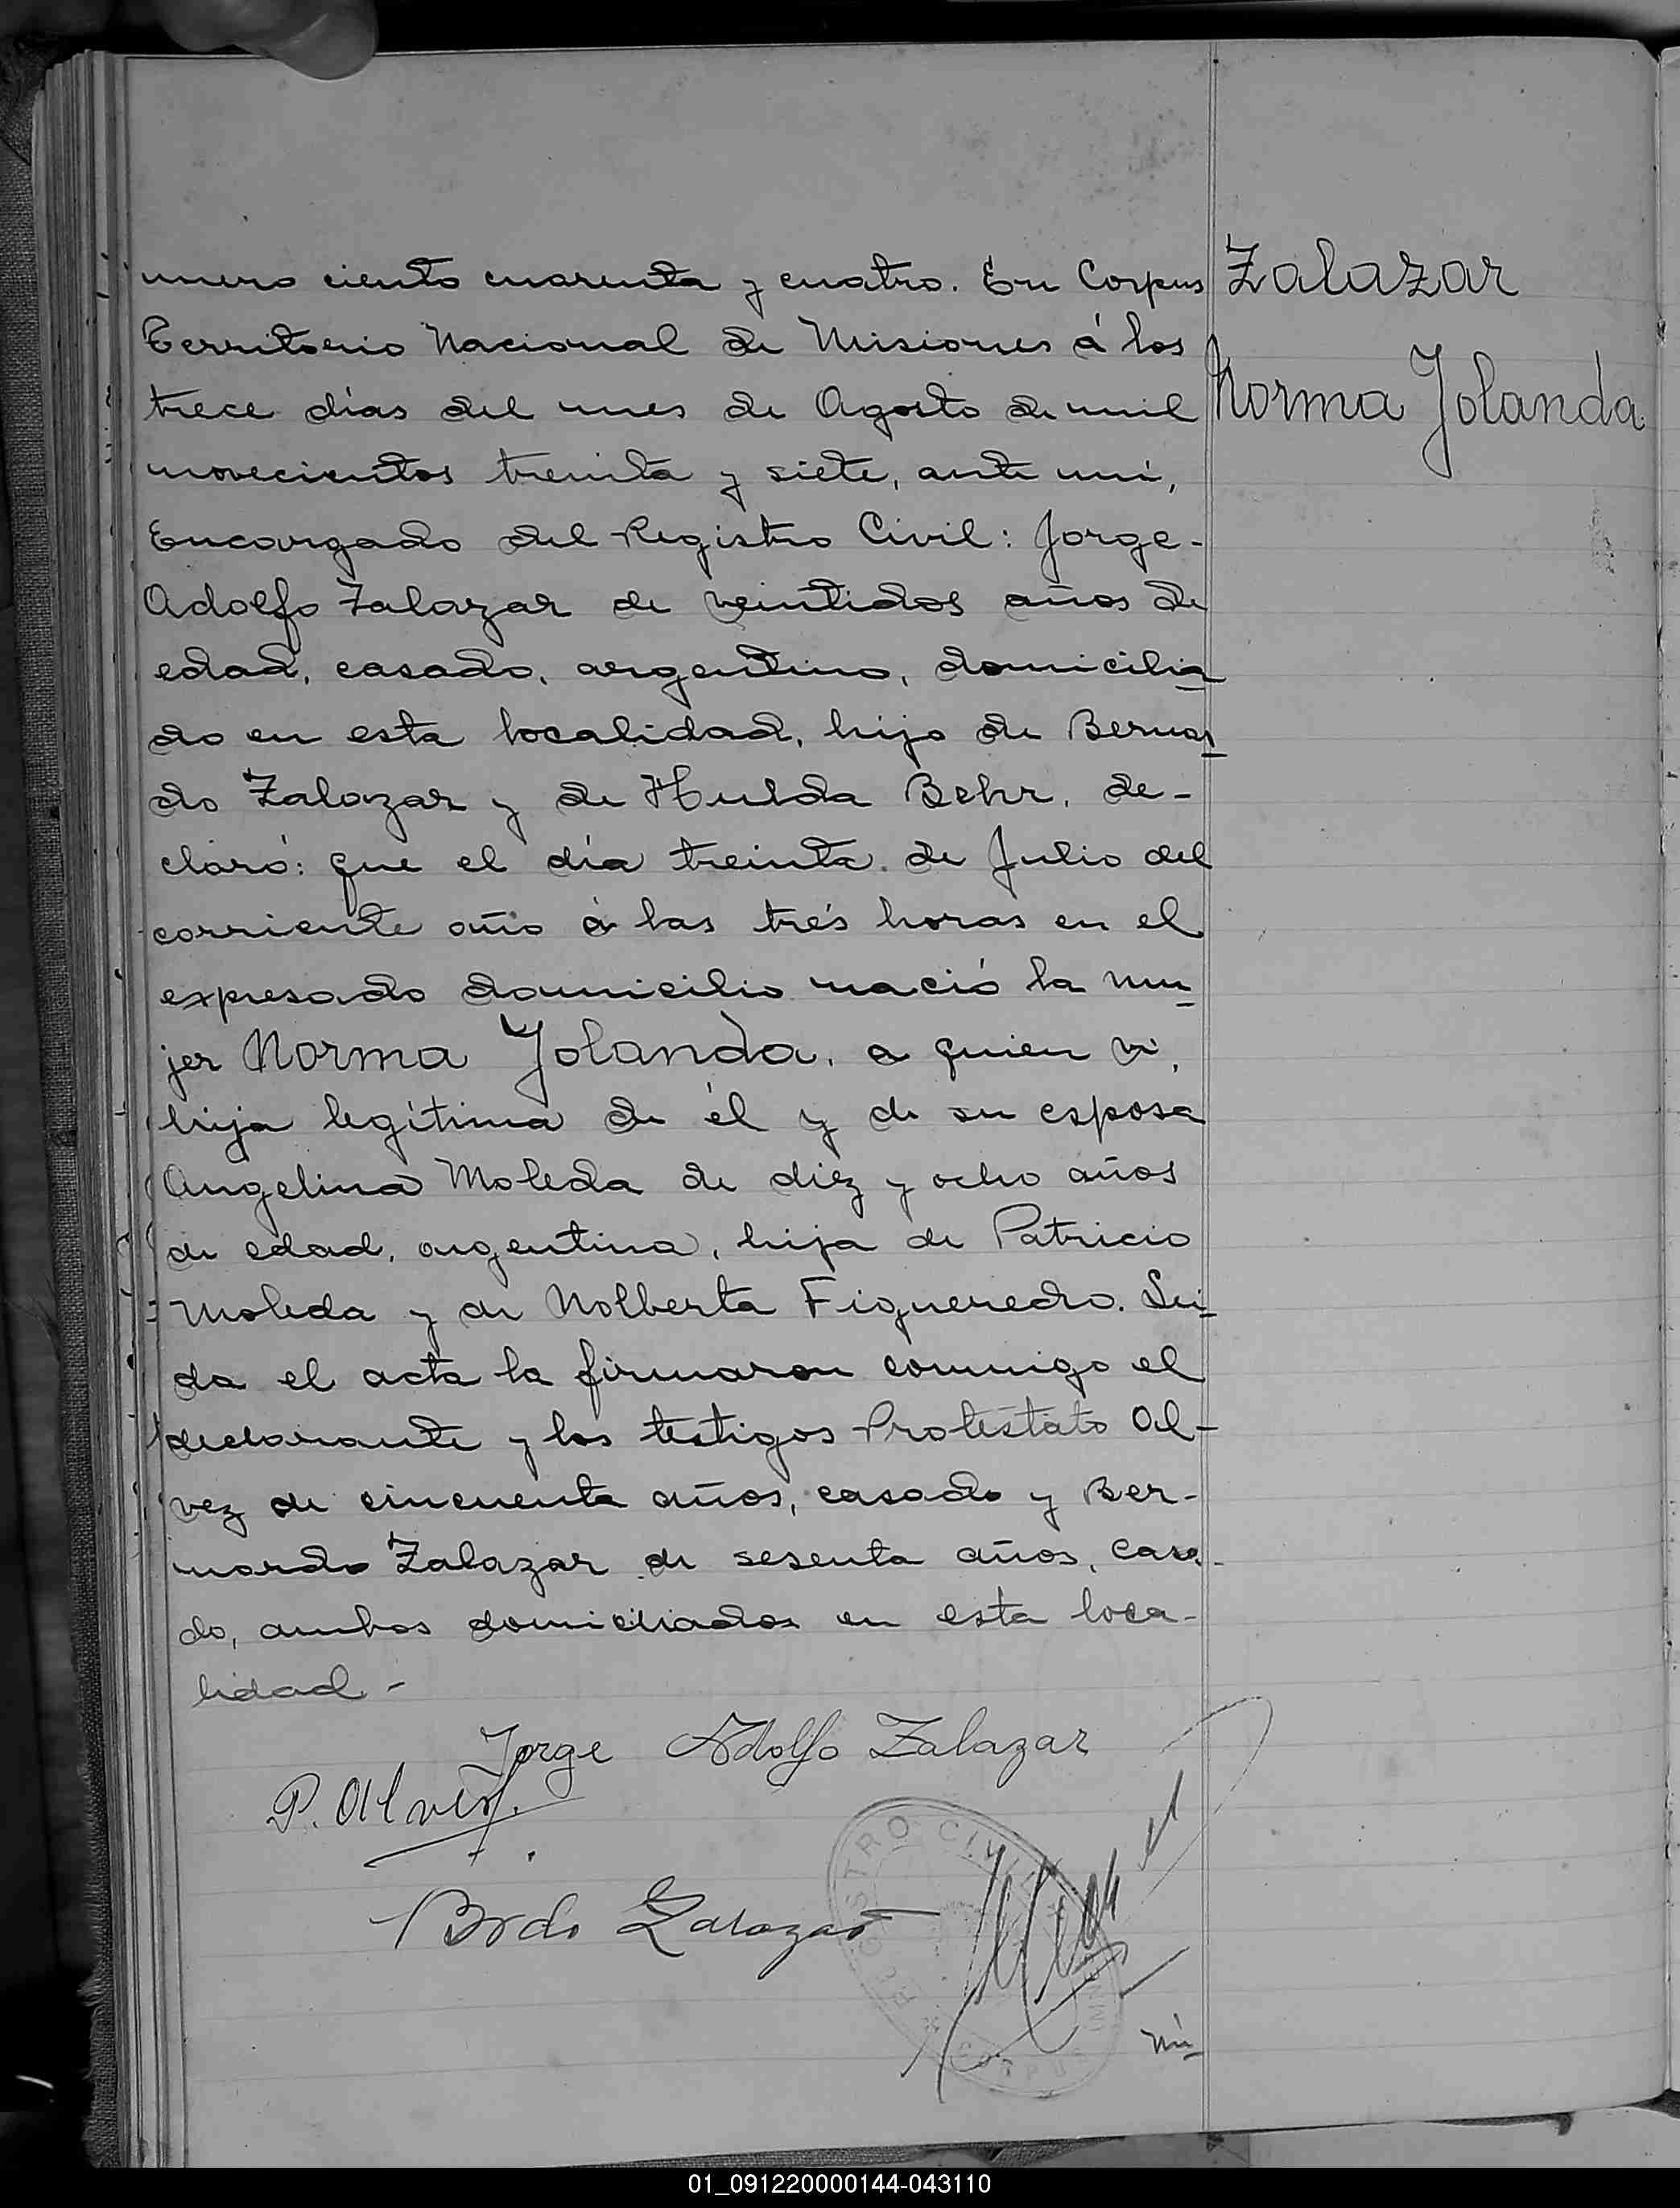 mero ciento cuarenta y cuatro. En Corpus
Territorio Nacional de Misiones á los
trece días del mes de Agosto de mil
novecientos treinta y siete, ante mi,
Encargado del Registro Civil: Jorge-
Adolfo Zalazar de veintidos años de
edad, casado, argentino, domicilia
do en esta localidad, hijo de Bernar
do Zalazar y de Hulda Behr, de-
claró: que el día treinta de Julio del
corriente año á las trés horas en el
expresado domicilio nació la mu
jer Norma Jolanda, a quien vi,
hija legítima de él y de su esposa
Angelina Moleda de diez y ocho años
de edad, argentina, hija de Patricio
Moleda y de Nolberta Figueredo. Lei
da el acta la firmaron conmigo el
declarante y los testigos Protestato Al-
vez de cincuenta años, casado y Ber-
nardo Zalazar de sesenta años, casa-
do, ambos domiciliados en esta loca-
lidad-
Zalazar
Norma Jolanda
Jorge Adolfo Zalazar
P. Alvez.
Brdo Zalazar
REGISTRO CIVIL
CORPUS
Nú
01_091220000144-043110